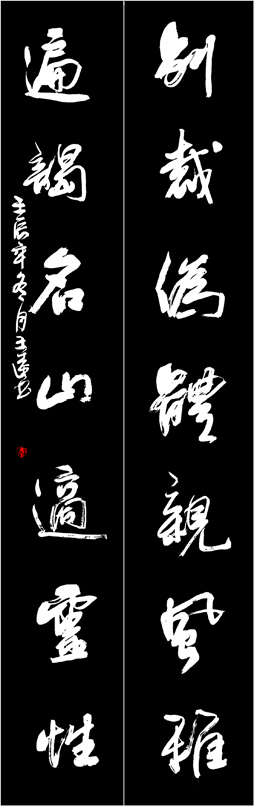 別裁偽體親風雅
遍謁名山適靈性
壬辰年冬月王道